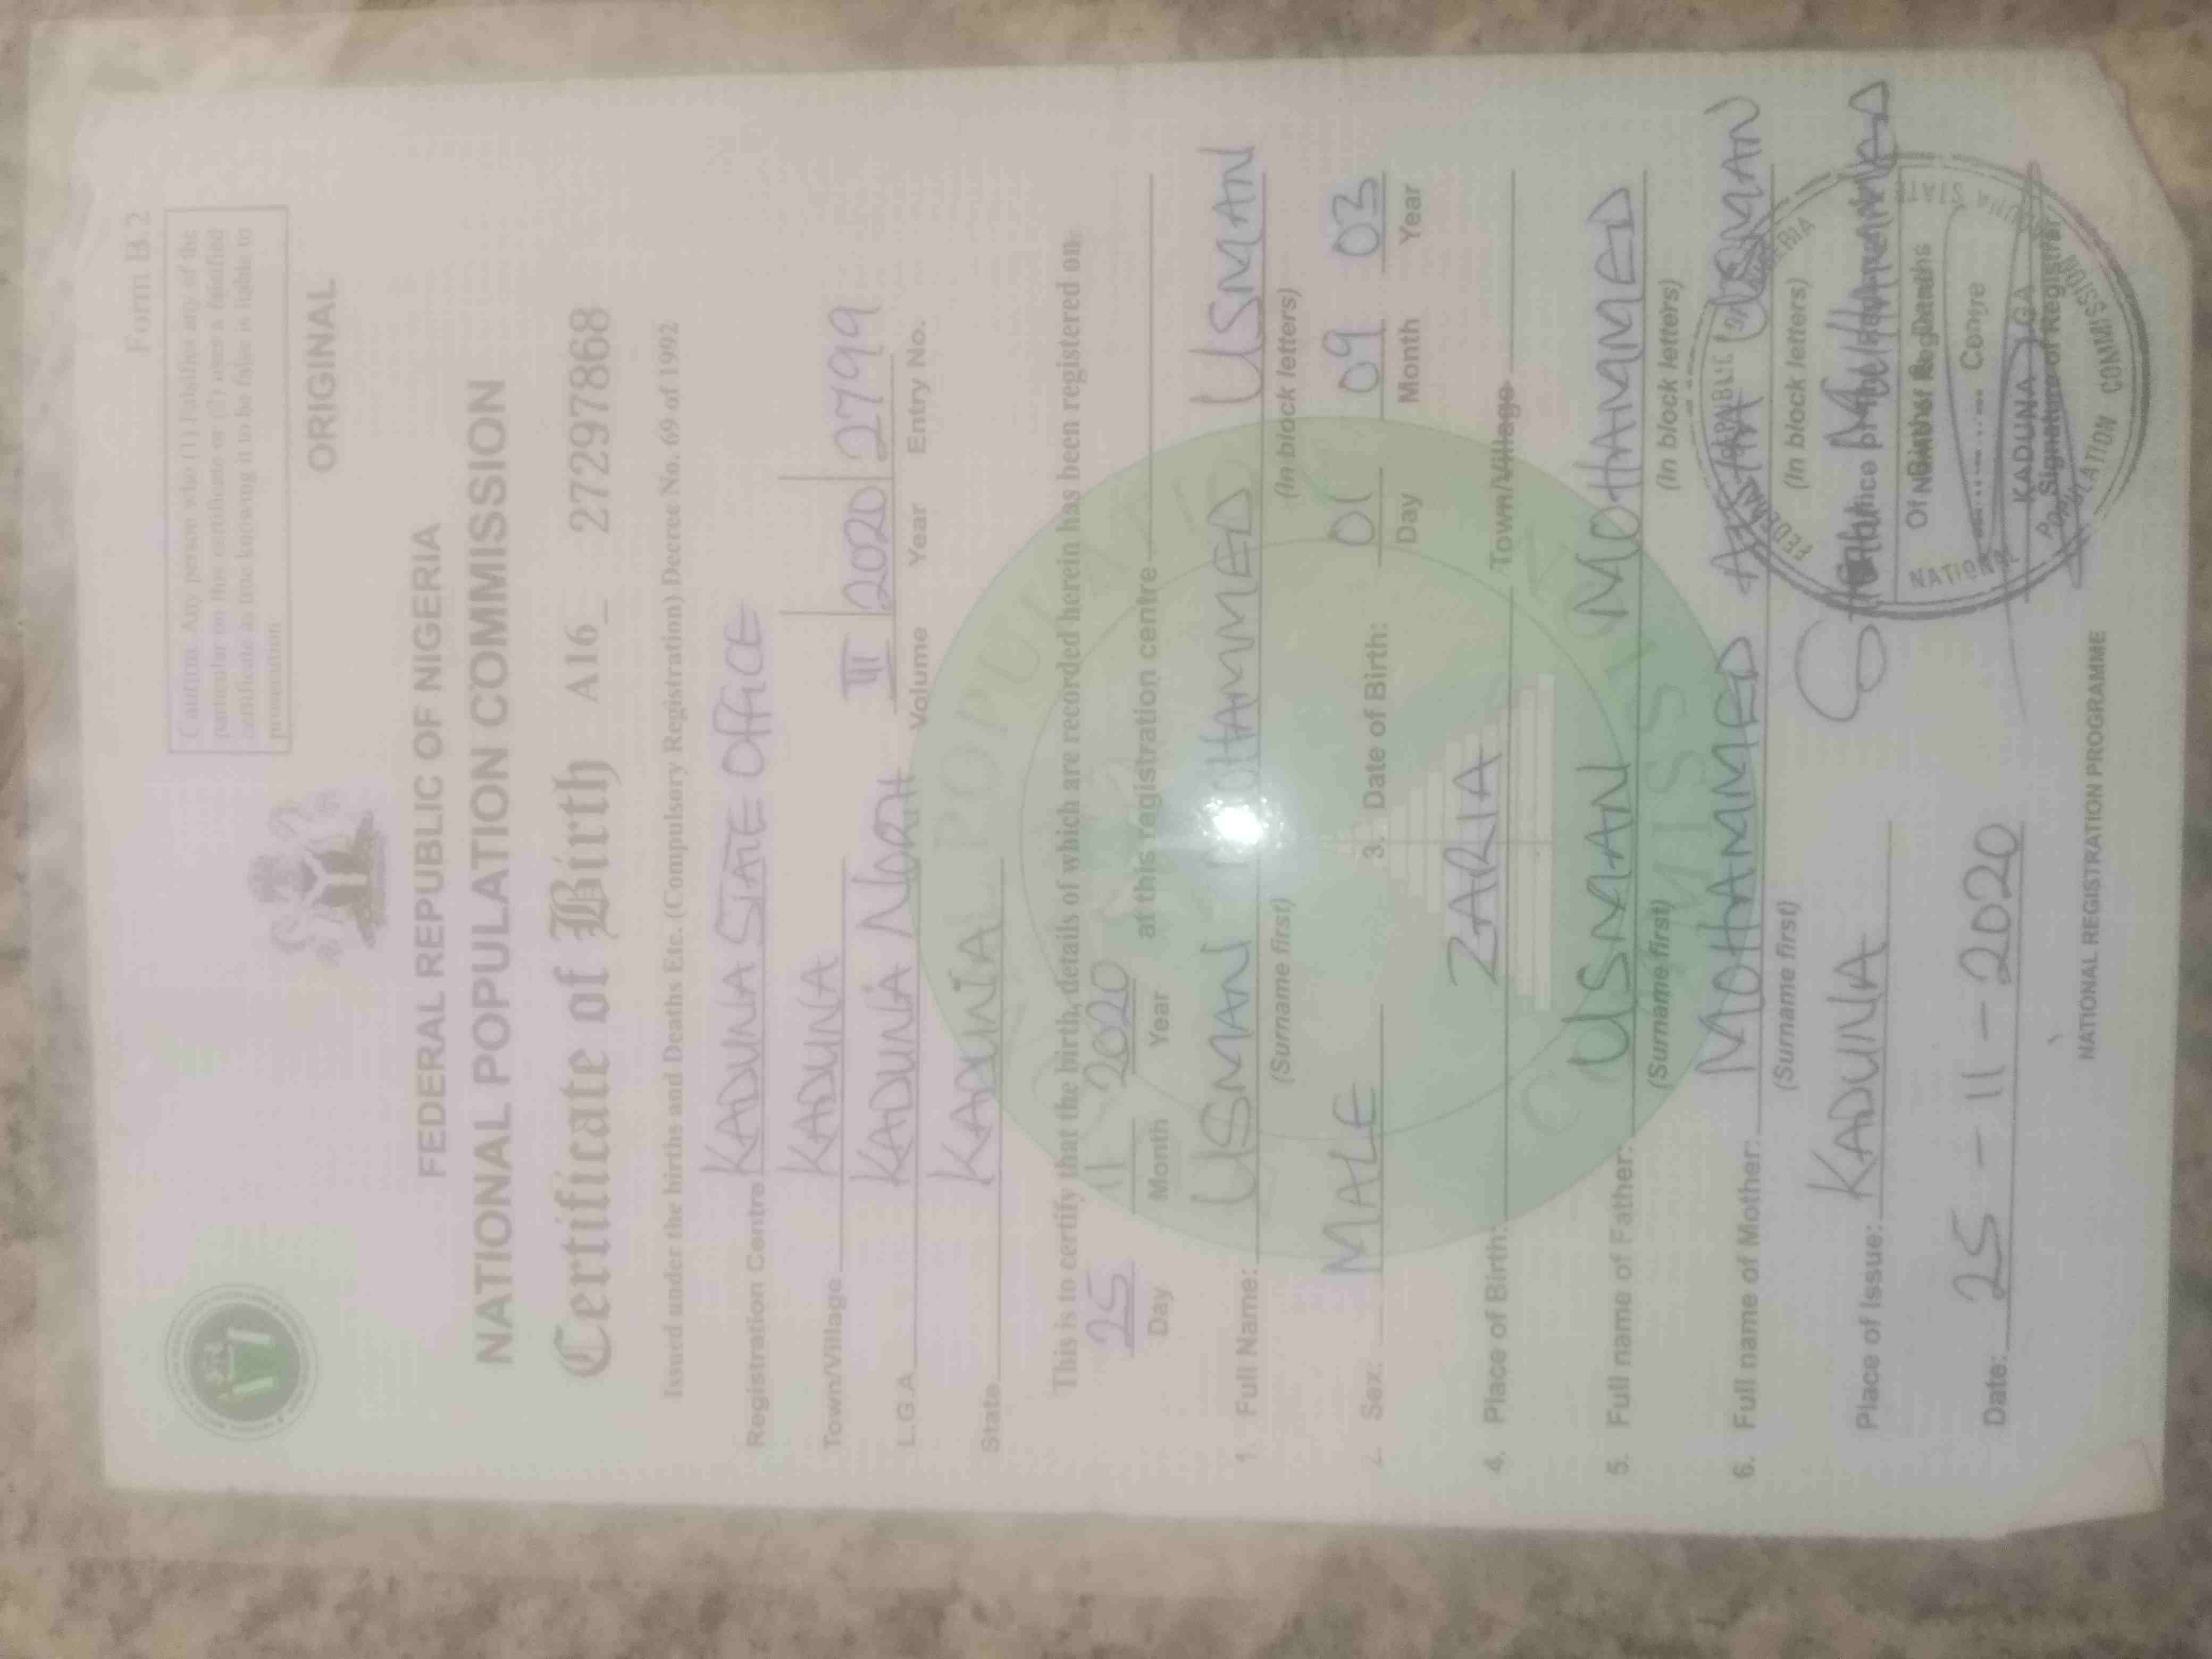 Form B.2
Caution: Any person who (1) falsifies any of the
particular on this certificate or (2) uses a falsified
certificate as true knowing it to be false is liable to
prosecution
ORIGINAL
FEDERAL REPUBLIC OF NIGERIA
NATIONAL POPULATION COMMISSION
Certificate of Birth A16_ 27297868
Issued under the births and Deaths Etc. (Compulsory Registration) Decree No. 69 of 1992
Registration Centre KADUNA STATE OFFICE
Town/Village KADUNA
L.G.A. KADUNA NORTH III 2020 2799
Volume Year Entry No.
State KADUNA
This is to certify that the birth, details of which are recorded herein has been registered on
25 11 2020 at this registration centre
Day Month Year
1. Full Name: USMAN MOHAMMED USMAN
(Surname first) (In block letters)
2. Sex: MALE 3. Date of Birth: 01 09 03
Day Month Year
4. Place of Birth: ZARIA Town/Village
5. Full name of Father: USMAN MOHAMMED
(Surname first) (In block letters)
6. Full name of Mother: MOHAMMED USMAN
(Surname first) (In block letters)
Place of Issue: KADUNA
Date: 25 - 11 - 2020
Signature of Registrar
KADUNA
NATIONAL POPULATION COMMISSION
NATIONAL REGISTRATION PROGRAMME